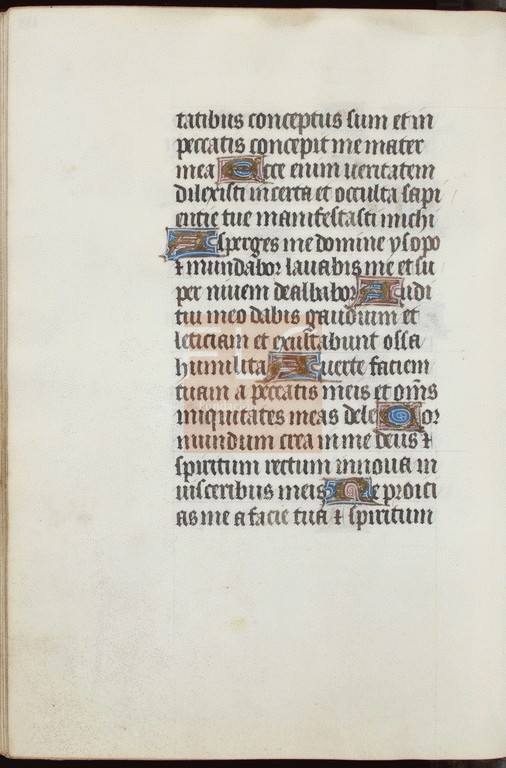 tatibus conceptus sum et in
peccatis concepit me mater
mea Ecce enim ueritatem
dilexisti incerta et occulta sapi
entie tue manifestasti michi
Asperges me domine ysopo
⁊ mundabor lauabis me et su
per niuem dealbabor Audi
tui meo dabis gaudium et
leticiam et exultabunt ossa
humilita Auerte faciem
tuam a peccatis meis et om̄s
iniquitates meas dele Cor
mundum crea in me deus ⁊
spiritum rectum innoua in
uisceribus meis Ne proici
as me a facie tua ⁊ spiritum